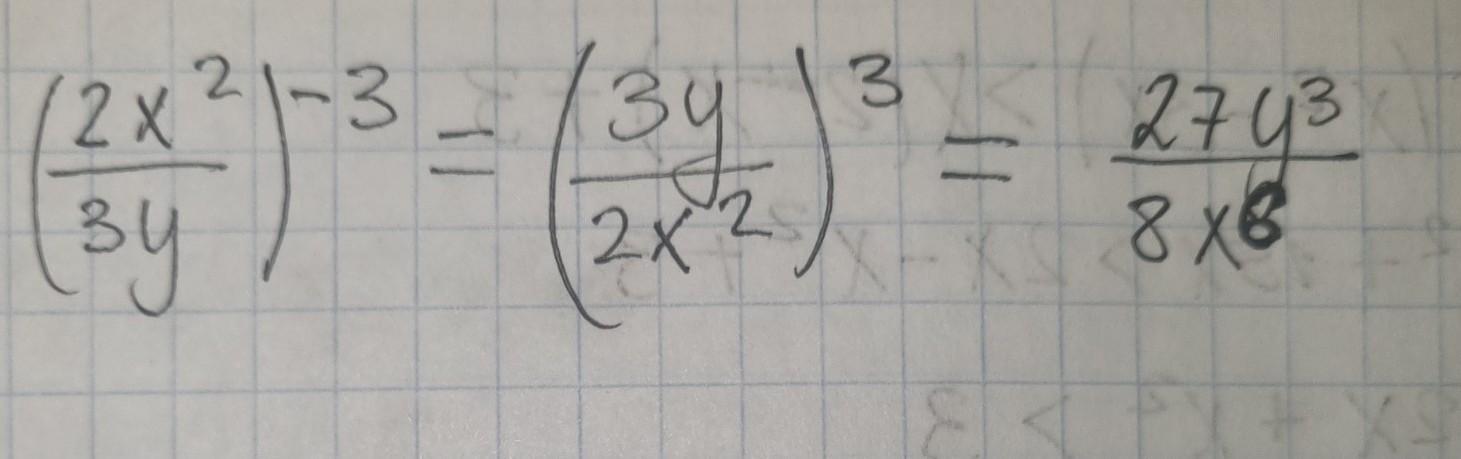 (2x²/3y)⁻³ = (3y/2x²)³ = 27y³/8x⁶